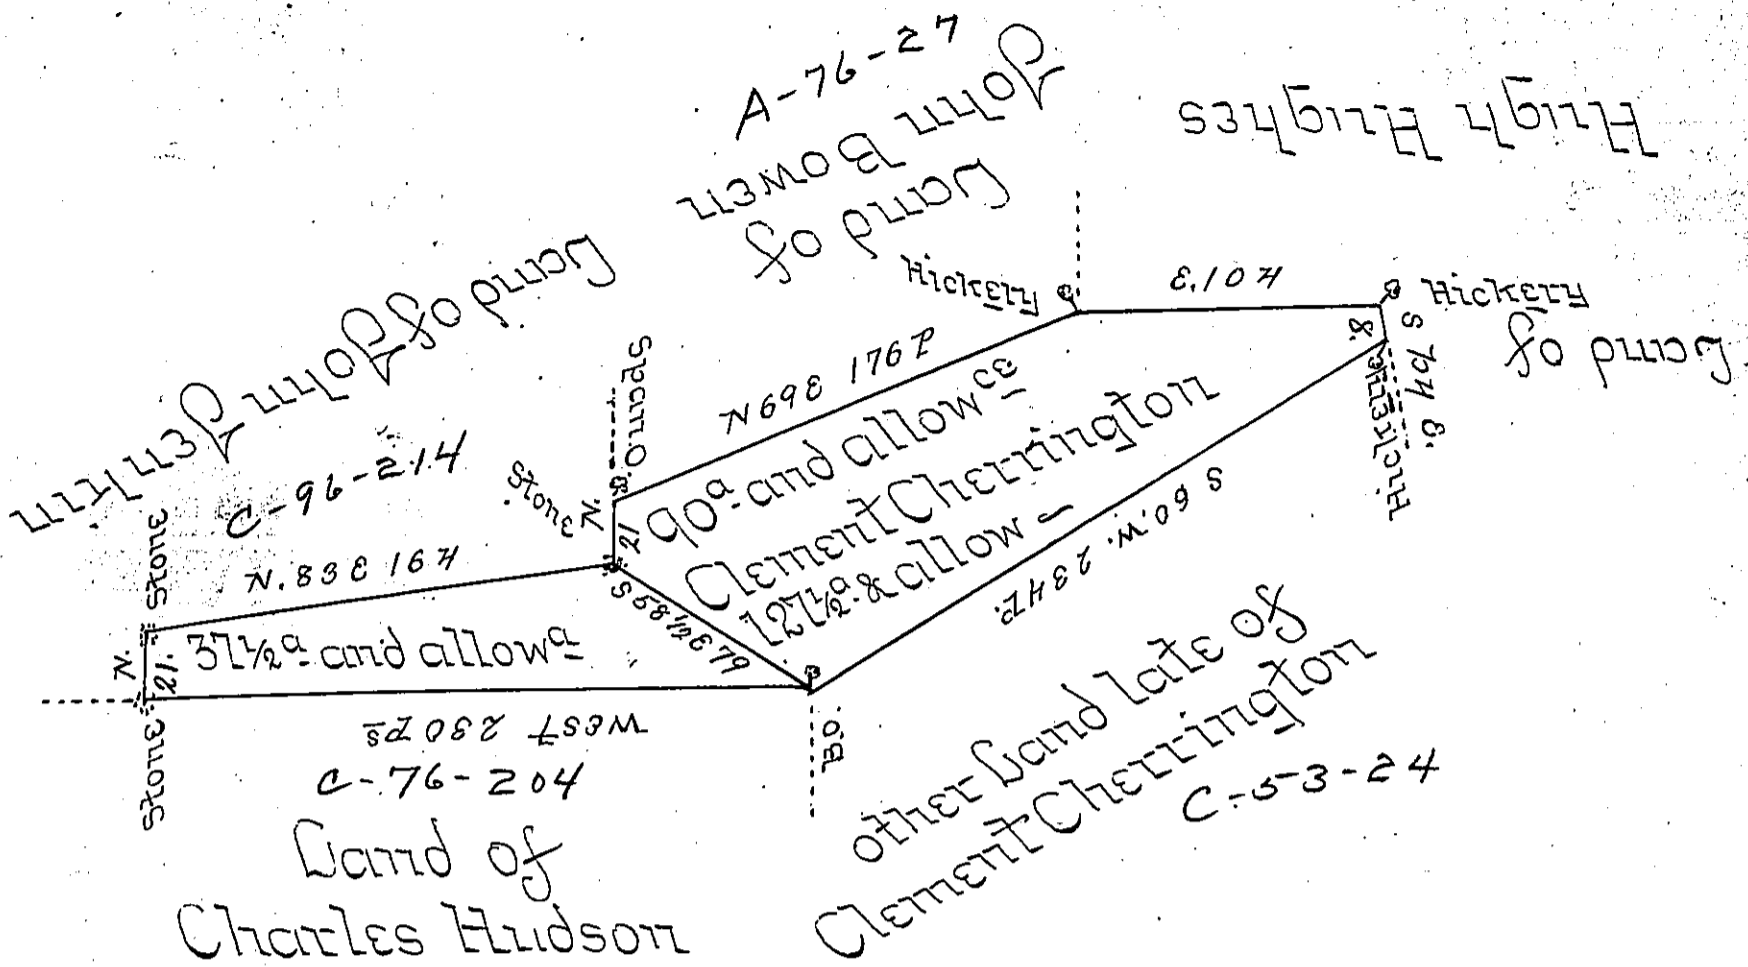 A-76-27
John Bowen
Land of
Hugh Hughes
Land of
Land of John Jenkin
C-96-214
Hickery
E. 104
Hickery
S 7 1/4 E.
8.
Hickery
Span. O.
N 69 E 176 P
90 a and allow ce
Clement Cherrington
127 1/2 a & allow
S 60, W. 234 P.
Stone
N.
21
Stone
N. 83 E 164
N.
21.
37 1/2 a and allow a
Stone
West 230 Ps
B.O.
C-76-204
Land of
Charles Hudson
other Land late of
Clement Cherrington
C-53-24